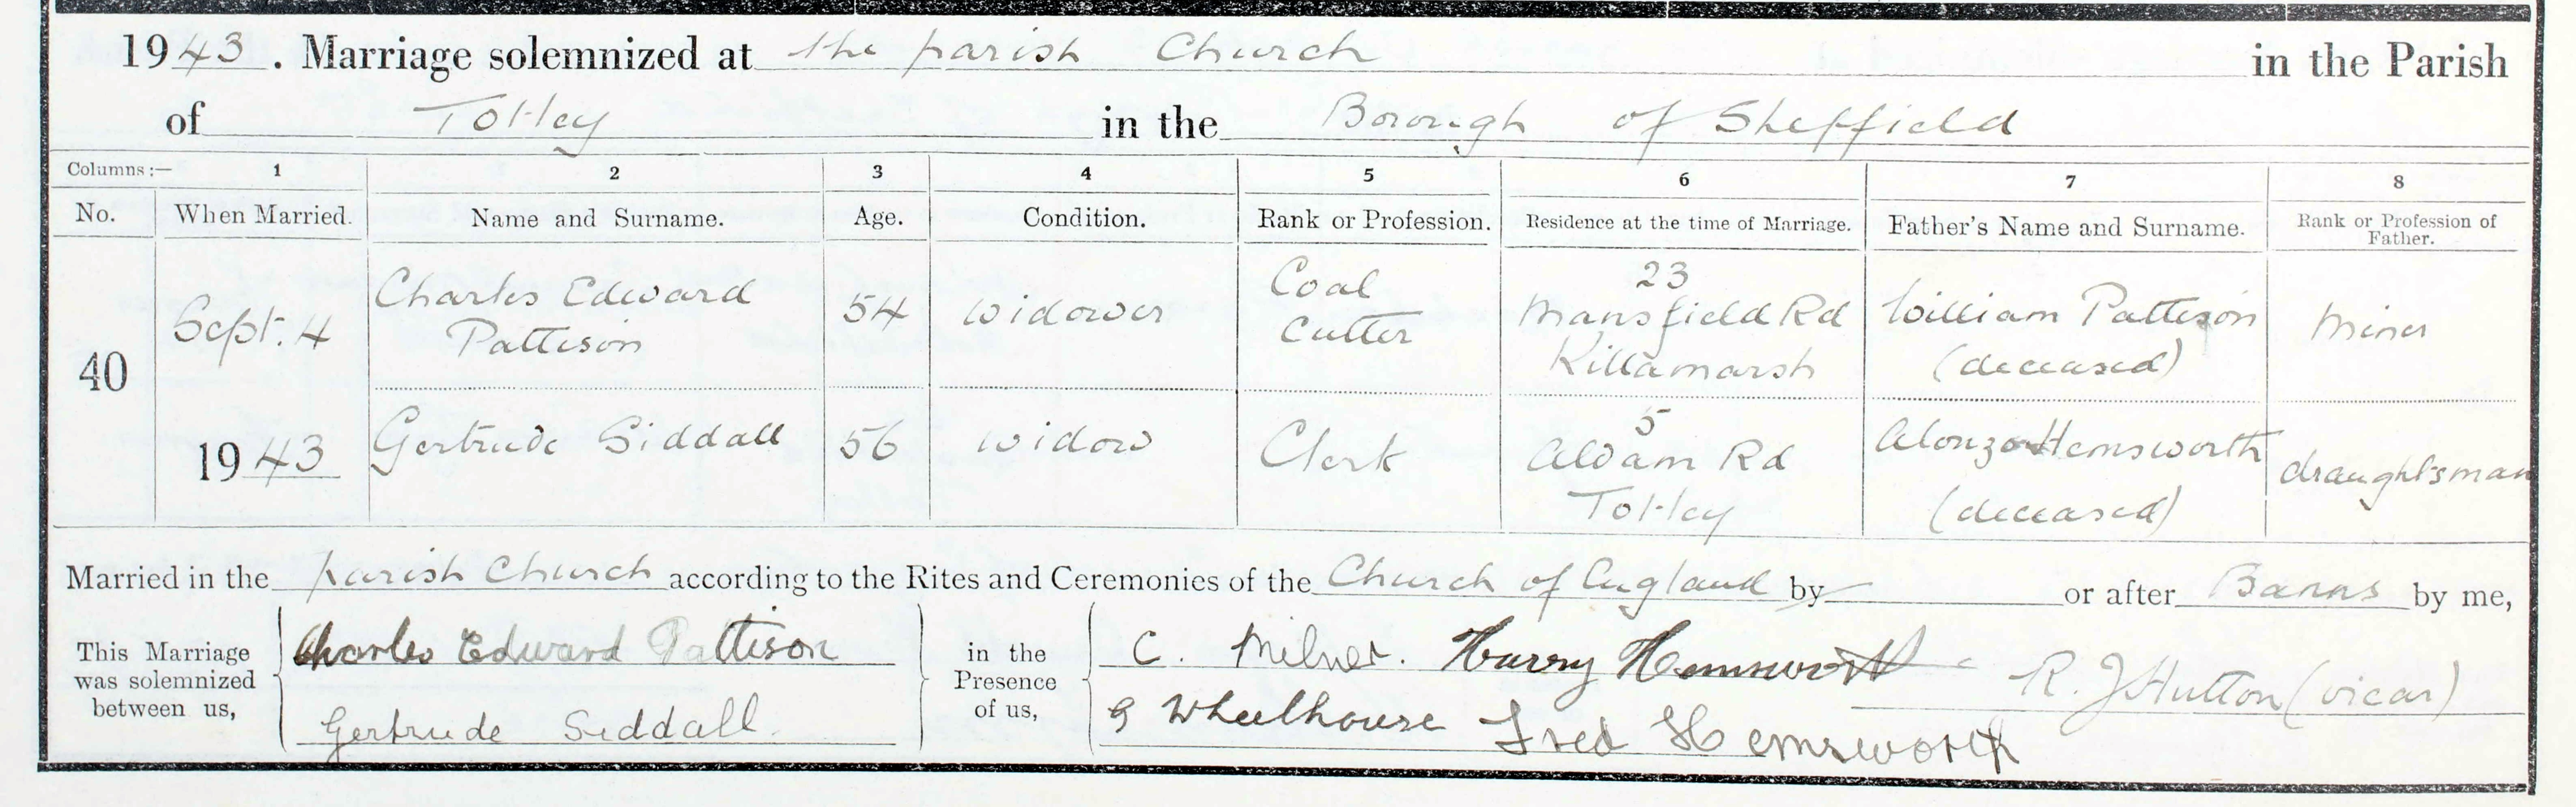 1943. Marriage solemnized at the parish Church in the Parish
of Totley in the Borough of Sheffield
Columns :— 1 2 3 4 5 6 7 8
No. When Married. Name and Surname. Age. Condition. Rank or Profession. Residence at the time of Marriage. Father's Name and Surname. Rank or Profession of Father.
40 Sept. 4 Charles Edward Pattison 54 widower Coal Cutter 23 Mansfield Rd Killamarsh William Pattison (deceased) Miner
1943 Gertrude Siddall 56 widow Clerk 5 Aldam Rd Totley Alonzo Hemsworth (deceased) draughtsman
Married in the parish Church according to the Rites and Ceremonies of the Church of England by or after Banns by me,
This Marriage was solemnized between us, Charles Edward Pattison
Gertrude Siddall
in the Presence of us, C. Milner. Harry Hemsworth
G Wheelhouse Fred Hemsworth
R. J Hutton (vicar)